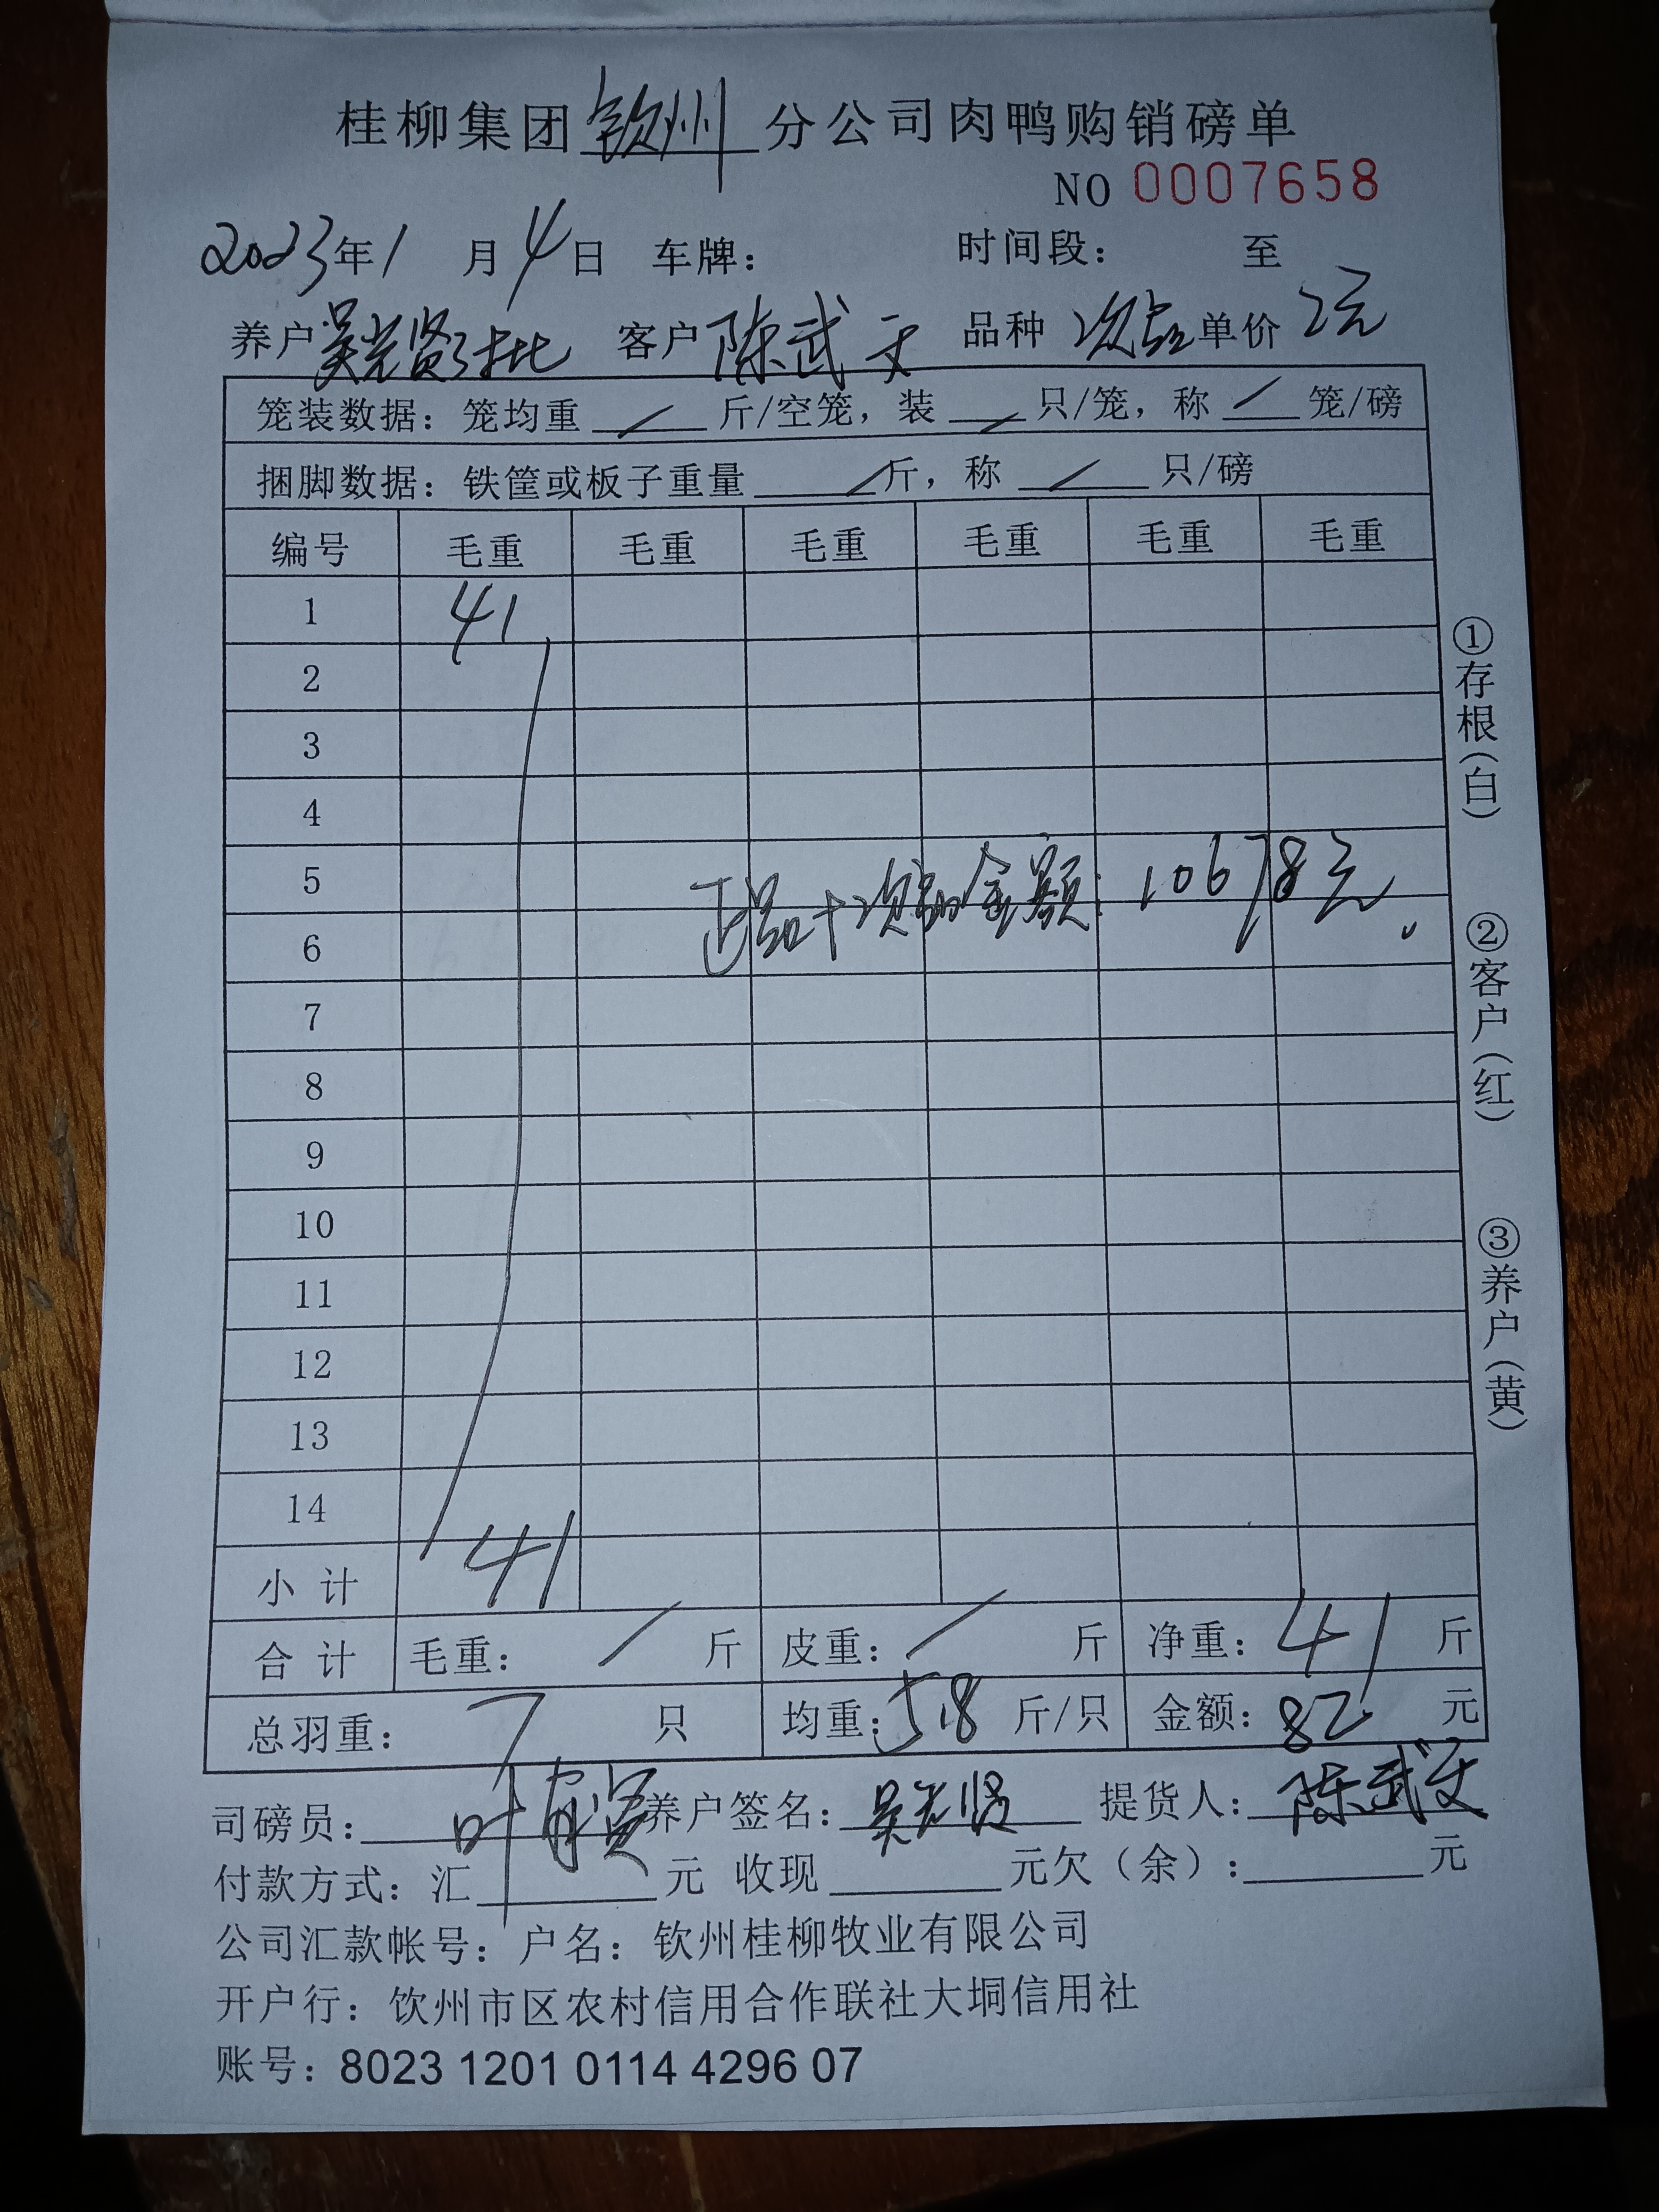 桂柳集团钦州分公司肉鸭购销磅单
NO 0007658
2023年1月4日 车牌： 时间段： 至
养户吴光贤3批 客户陈武文 品种次品单价2元
笼装数据：笼均重/斤/空笼，装/只/笼，称/笼/磅
捆脚数据：铁筐或板子重量/斤，称/只/磅
编号 毛重 毛重 毛重 毛重 毛重 毛重
1 41
2
3
4
5
正品+次品金额：10678元.
6
7
8
9
10
11
12
13
14
小计 41
合计 毛重：/斤 皮重：/斤 净重：41斤
总羽重：7只 均重：5.8斤/只 金额：82元
司磅员：叶 养户签名：吴光贤 提货人：陈武文
付款方式：汇 元 收现 元欠（余）： 元
公司汇款帐号：户名：钦州桂柳牧业有限公司
开户行：钦州市区农村信用合作联社大垌信用社
账号：8023 1201 0114 4296 07
①存根（白）
②客户（红）
③养户（黄）